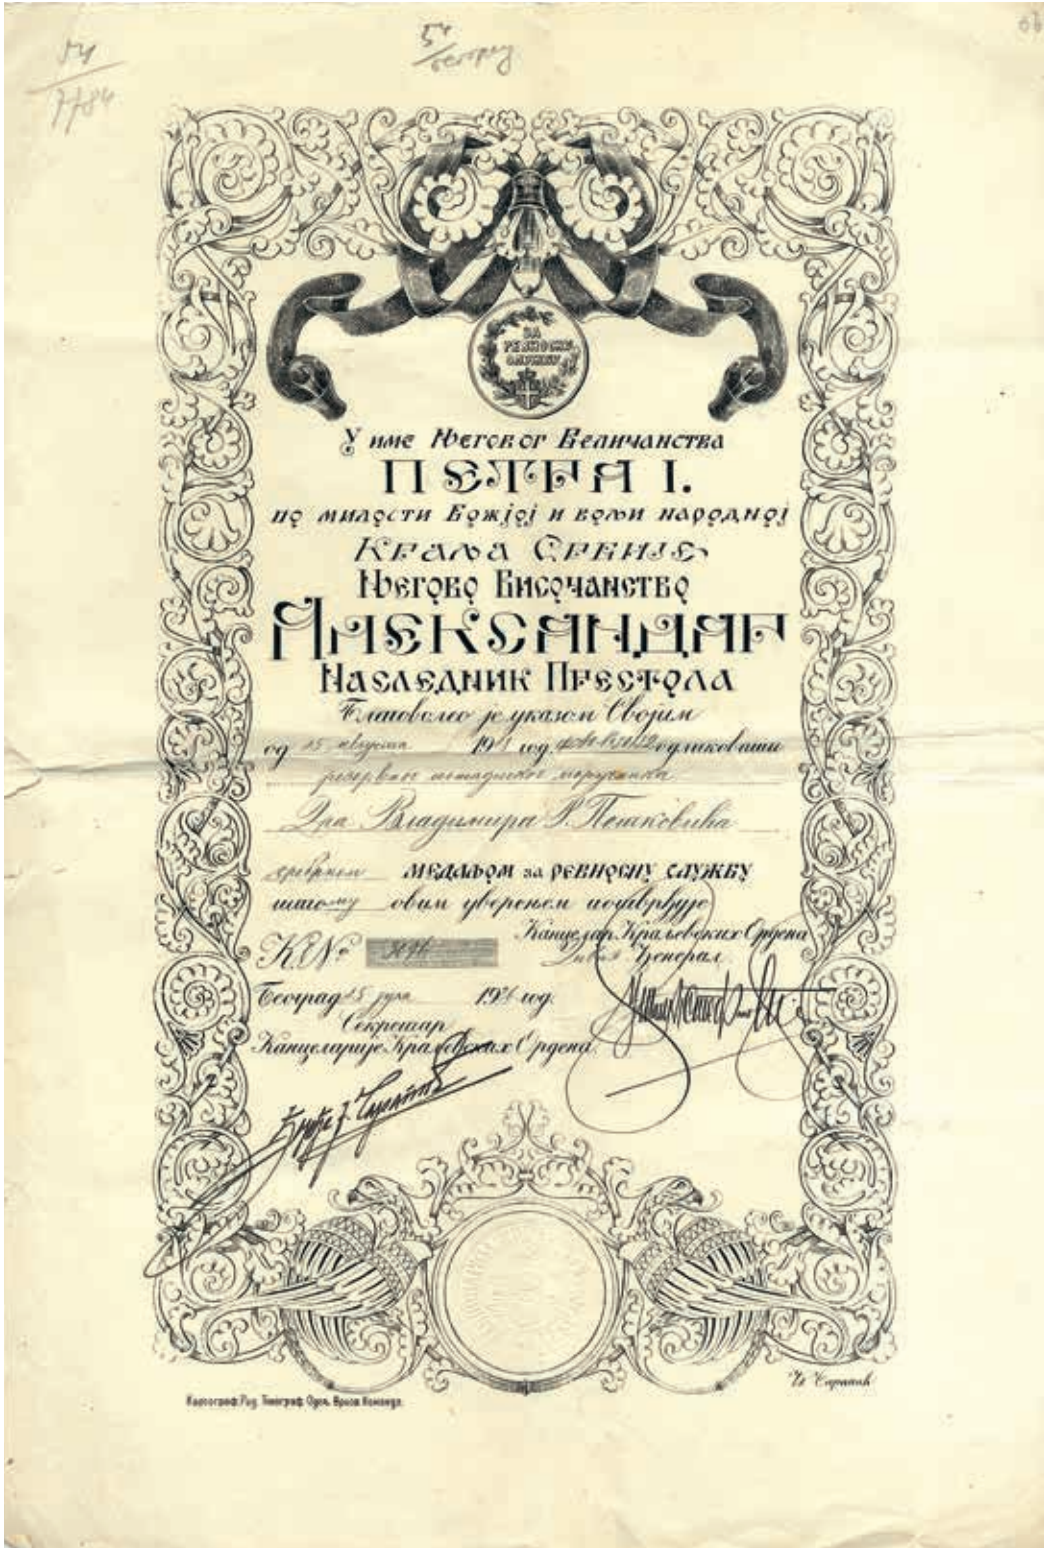 54
7784
54
66
ЗА
РЕВНОСНУ
СЛУЖБУ
У име Његовог Величанства
ПЕТРА I.
по милости Божјој и вољи народној
Краља Србије
Његово Височанство
Александар
Наследник Престола
Благоволео је указом Својим
од 15 августа 19 год. одликовати
резервног
Дра Владимира Р. Петковића
сребрном медаљом за ревносну службу
што му овим уверењем потврђује
К.№
Канцелар Краљевских Ордена
Ђенерал
Београд 15 јула 19 год.
Секретар
Канцеларије Краљевских Ордена
Картограф. Рад. Типограф. Одељ. Врхов. Команде.